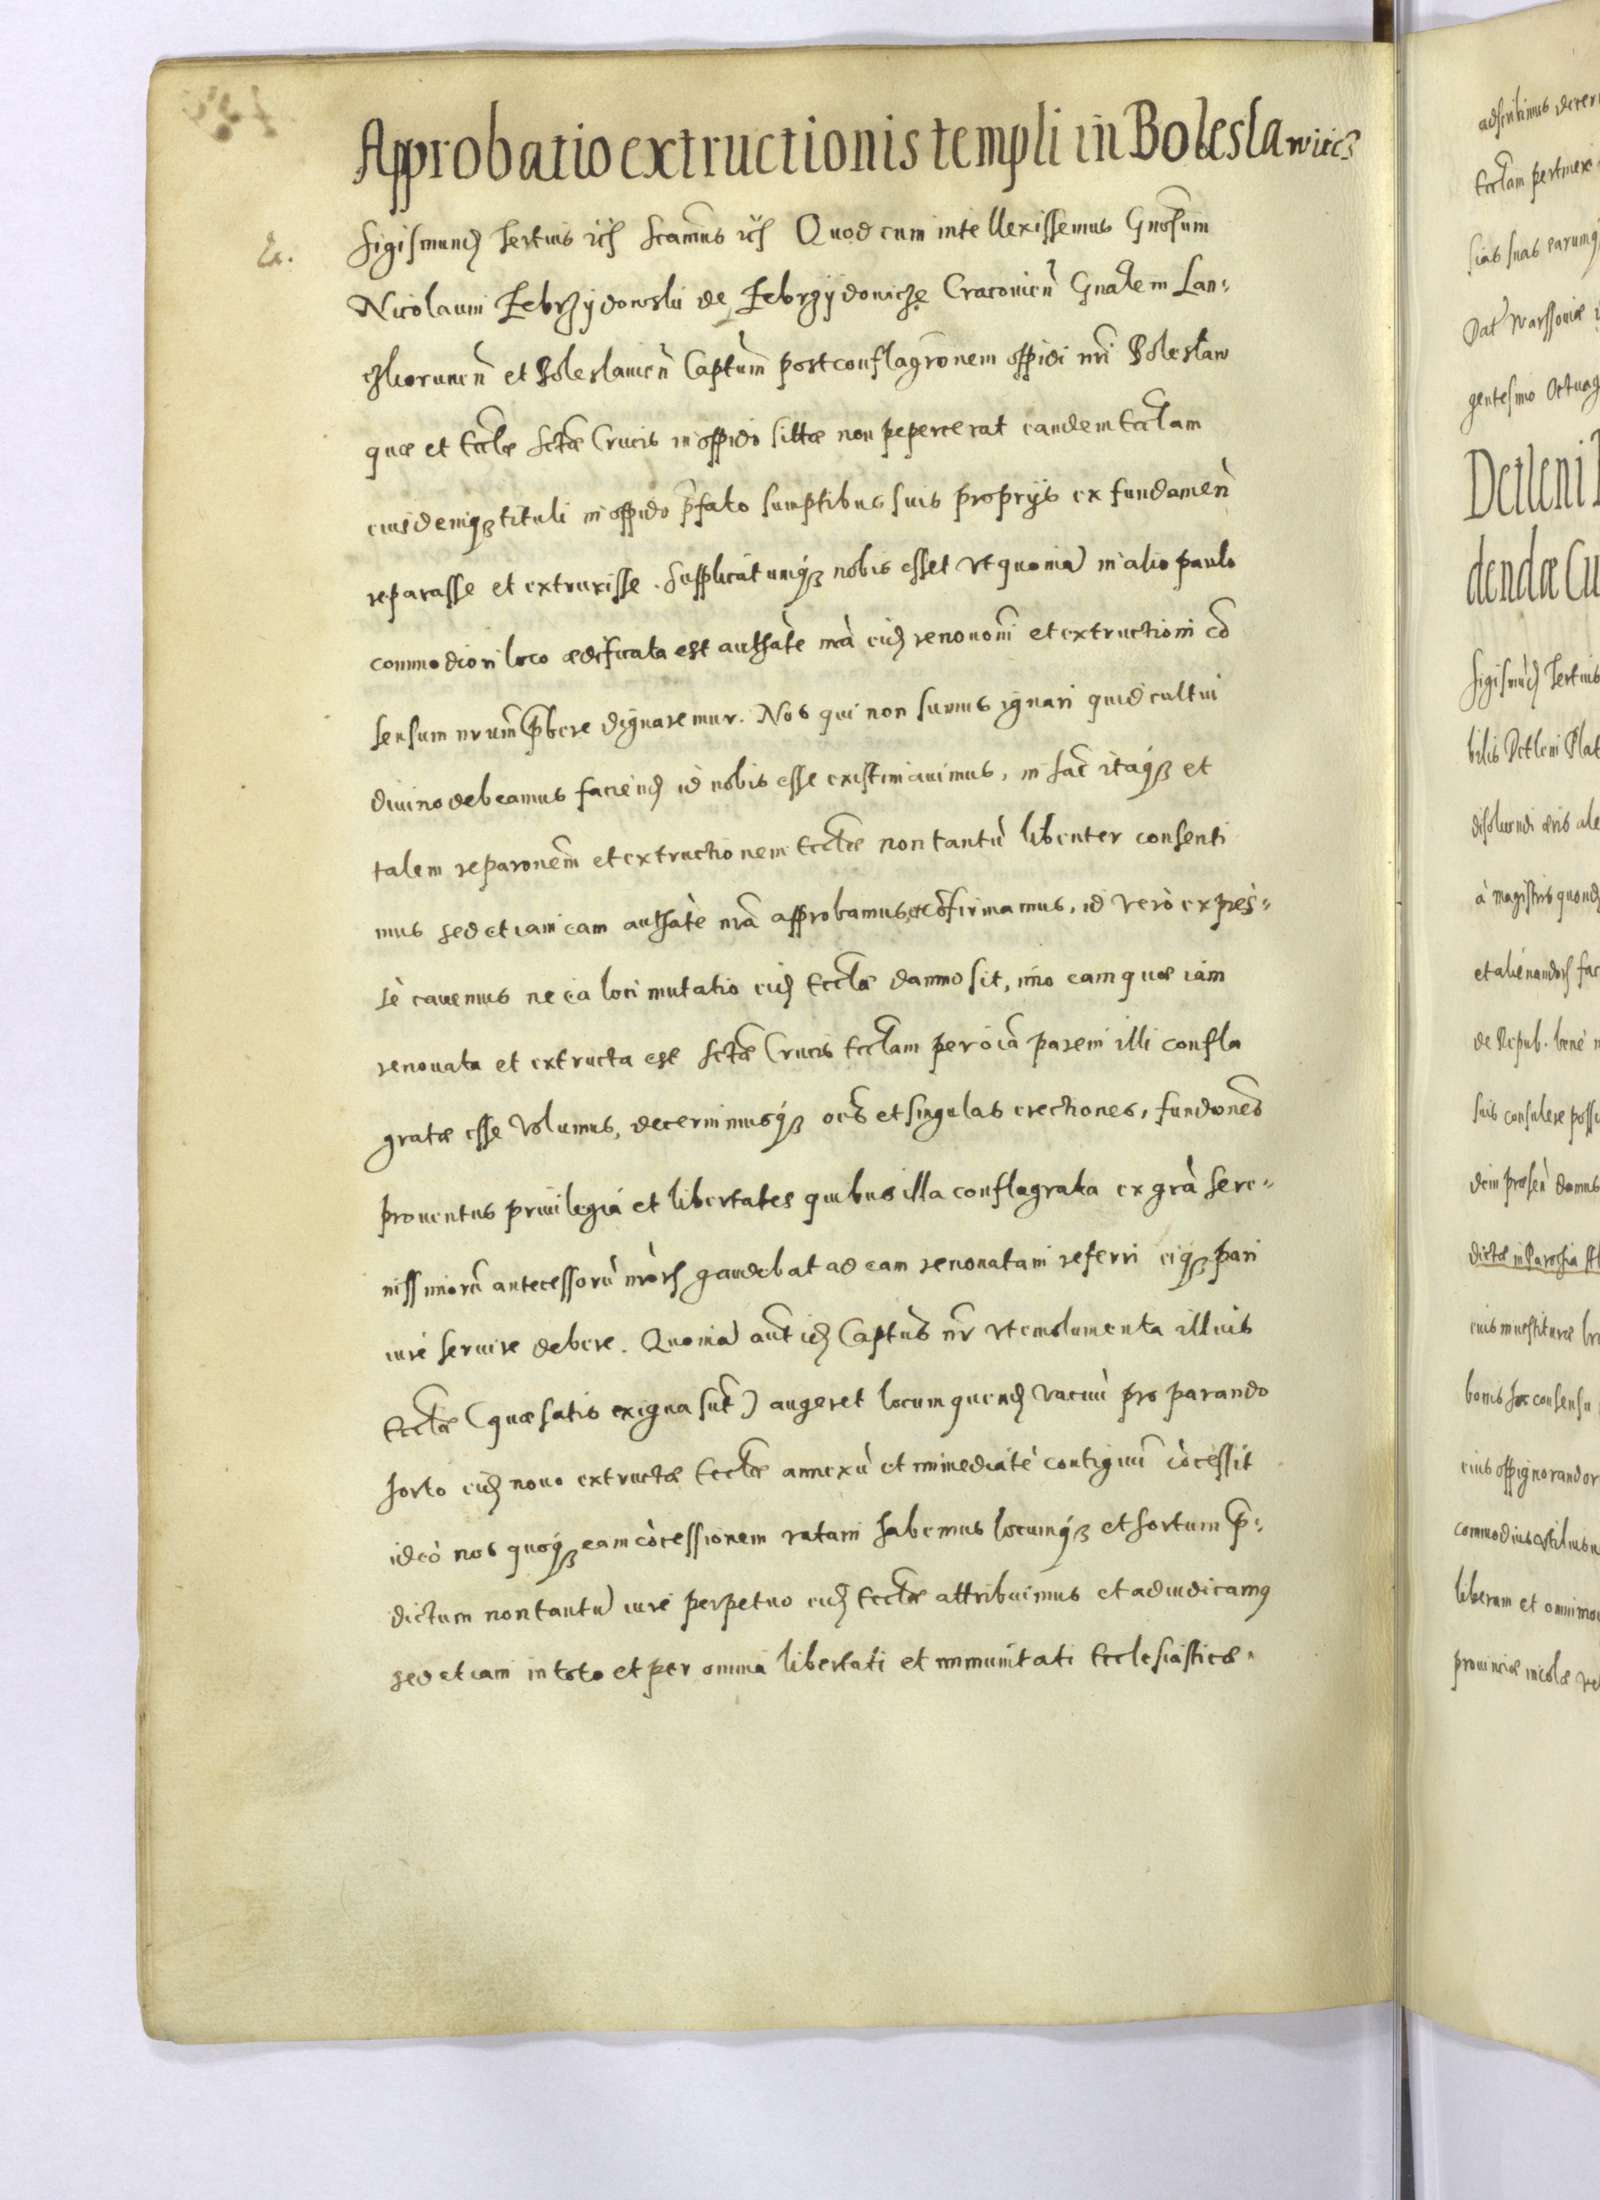 Approbatio extructionis templi in Boleslawiecz
Ex.
Sigismund9 Tertius etc Scamus etc Quod cum intellexissemus Gnosum
Nicolaum Zebrzydowski de Zebrzydowicze Cracovien Gnalem Lan-
czkorunen et Boleslavien Captum post conflagronem oppidi nri Boleslaw
quæ et Eccłæ Sctæ Crucis in oppido sittæ non pepercerat eandem Eccłam
eiusdemq3 tituli in oppido pfato sumptibus suis proprijs ex fundamen
reparasse et extruxisse. Supplicatumq3 nobis esset vt quonia in alio paulo
commodiori loco ædificata est authate nra eid renouoni et extructioni co
sensum nrum pbere dignaremur. Nos qui non sumus ignari quid cultui
diuino debeamus faciend id nobis esse existimauimus, in hac itaq3 et
talem reparonem et extructionem Eccłæ non tantu libenter consenti
mus sed etiam eam authate nra approbamus et cofirmamus, id verò expres-
sè cauemus ne ea loci mutatio eid Eccłæ damno sit, imo eam quæ iam
renouata et extructa est Sctæ Crucis Eccłam per oia parem illi confla
gratæ esse volumus, decernimusq3 oes et singulas erectiones, fundones
prouentus priuilegia et libertates quibus illa conflagrata ex gra Sere-
nissimoru antecessoru nror gaudebat ad eam renouatam referri eiq3 pari
iure seruire debere. Quonia aut id Captus nr vt emolumenta illius
Eccłæ (quæ satis exigua sut) augeret locum quend vacuu pro parando
horto eid nouo extructæ Eccłæ annexu et immediatè contiguu cocessit
ideò nos quoq3 eam cocessionem ratam habemus locumq3 et hortum p-
dictum non tantu iure perpetuo eid Eccłæ attribuimus et adiudicam9
sed etiam in toto et per omnia libertati et immunitati Ecclesiasticæ
adscribimus decer
Eccłam pertinere
sias suas earumq
Dat Warssouiæ
gentesimo Octuag
Detleni
dendæ Cu
Sigismud Tertius
bilis Detleni Plat
disoluendi æris ale
à magistris quond
et alienandor fac
de Repub. bene m
suis consulere possi
dem prosen domus
dictæ in Parochia
eius inuestituræ
bonis hoc consensu
eius oppignorandor
commodius vtilius
liberam et omnimo
prouinciæ incolæ